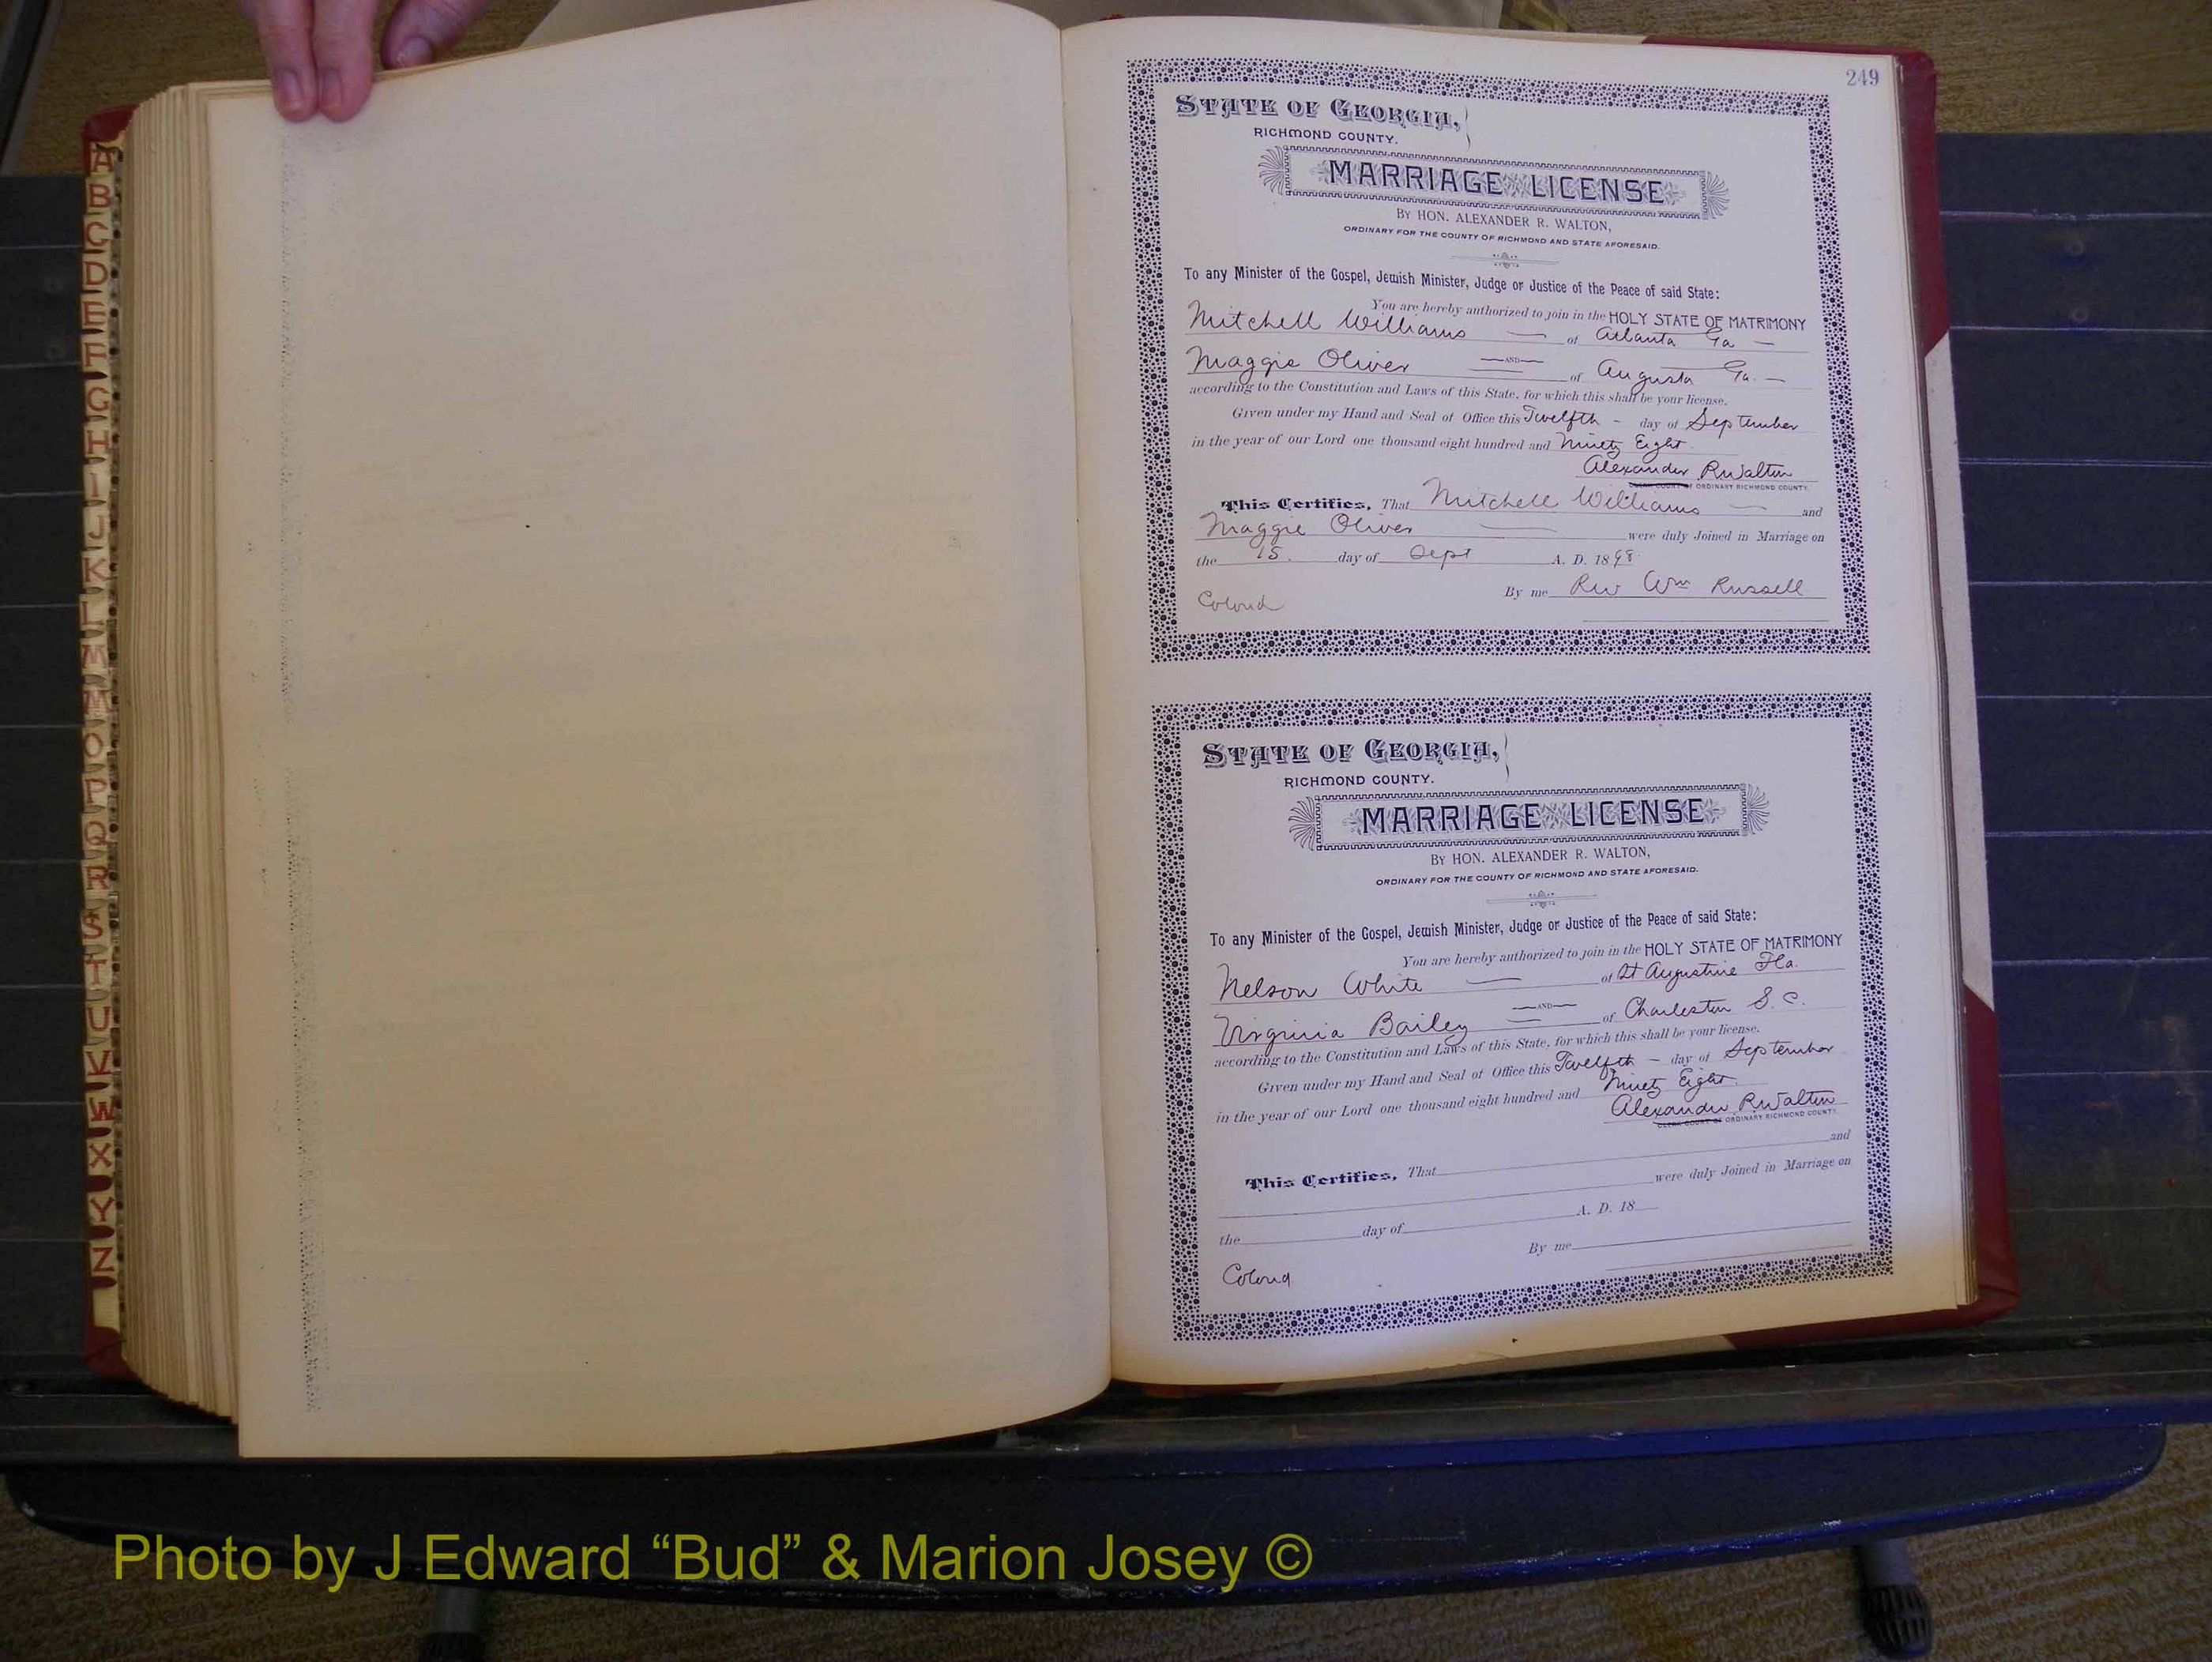 249
STATE OF GEORGIA,
RICHMOND COUNTY.
MARRIAGE LICENSE
BY HON. ALEXANDER R. WALTON,
ORDINARY FOR THE COUNTY OF RICHMOND AND STATE AFORESAID.
To any Minister of the Gospel, Jewish Minister, Judge or Justice of the Peace of said State:
You are hereby authorized to join in the HOLY STATE OF MATRIMONY
Mitchell Williams — of Atlanta Ga —
—AND—
Maggie Oliver — of Augusta Ga. —
according to the Constitution and Laws of this State, for which this shall be your license.
Given under my Hand and Seal of Office this Twelfth - day of September
in the year of our Lord one thousand eight hundred and Ninety Eight.
Alexander R Walton
CLERK COURT OF ORDINARY RICHMOND COUNTY.
This Certifies, That Mitchell Williams — and
Maggie Oliver — were duly Joined in Marriage on
the 15. day of Sept A. D. 1898.
By me Rev Wm Russell
Colored
STATE OF GEORGIA,
RICHMOND COUNTY.
MARRIAGE LICENSE
BY HON. ALEXANDER R. WALTON,
ORDINARY FOR THE COUNTY OF RICHMOND AND STATE AFORESAID.
To any Minister of the Gospel, Jewish Minister, Judge or Justice of the Peace of said State:
You are hereby authorized to join in the HOLY STATE OF MATRIMONY
Nelson White — of St Augustine Fla.
—AND—
Virginia Bailey — of Charleston S. C.
according to the Constitution and Laws of this State, for which this shall be your license.
Given under my Hand and Seal of Office this Twelfth — day of September
in the year of our Lord one thousand eight hundred and Ninety Eight.
Alexander R. Walton
CLERK COURT OF ORDINARY RICHMOND COUNTY.
This Certifies, That and
were duly Joined in Marriage on
the day of A. D. 18
By me
Colored
A
B
C
D
E
F
G
H
I
J
K
L
M
M
O
P
Q
R
S
T
U
V
W
X
Y
Z
Photo by J Edward “Bud” & Marion Josey ©